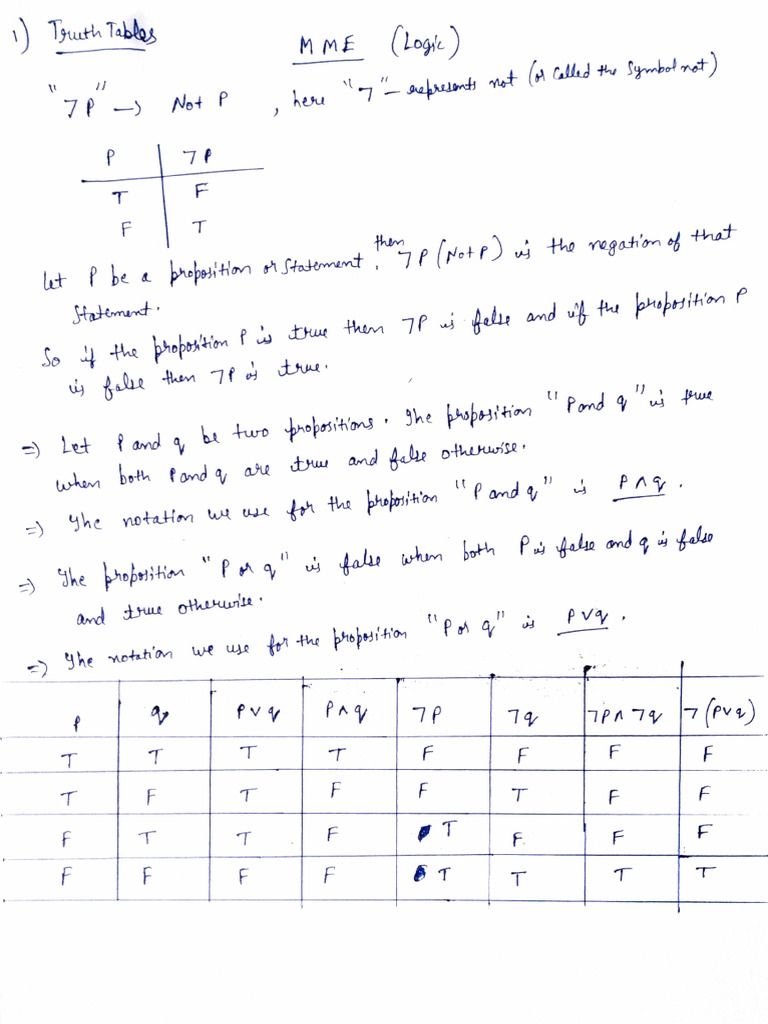 1) Truth Tables
MME (Logic)
"¬P" → Not P , here "¬" – represents not (or called the symbol not)
P | ¬P
T | F
F | T
Let P be a proposition or statement, then ¬P (Not P) is the negation of that
statement.
So if the proposition P is true then ¬P is false and if the proposition P
is false then ¬P is true.
⇒ Let P and q be two propositions. The proposition "P and q" is true
when both P and q are true and false otherwise.
⇒ The notation we use for the proposition "P and q" is P∧q.
⇒ The proposition "P or q" is false when both P is false and q is false
and true otherwise.
⇒ The notation we use for the proposition "P or q" is P∨q.
P | q | P∨q | P∧q | ¬P | ¬q | ¬P∧¬q | ¬(P∨q)
T | T | T | T | F | F | F | F
T | F | T | F | F | T | F | F
F | T | T | F | T | F | F | F
F | F | F | F | T | T | T | T